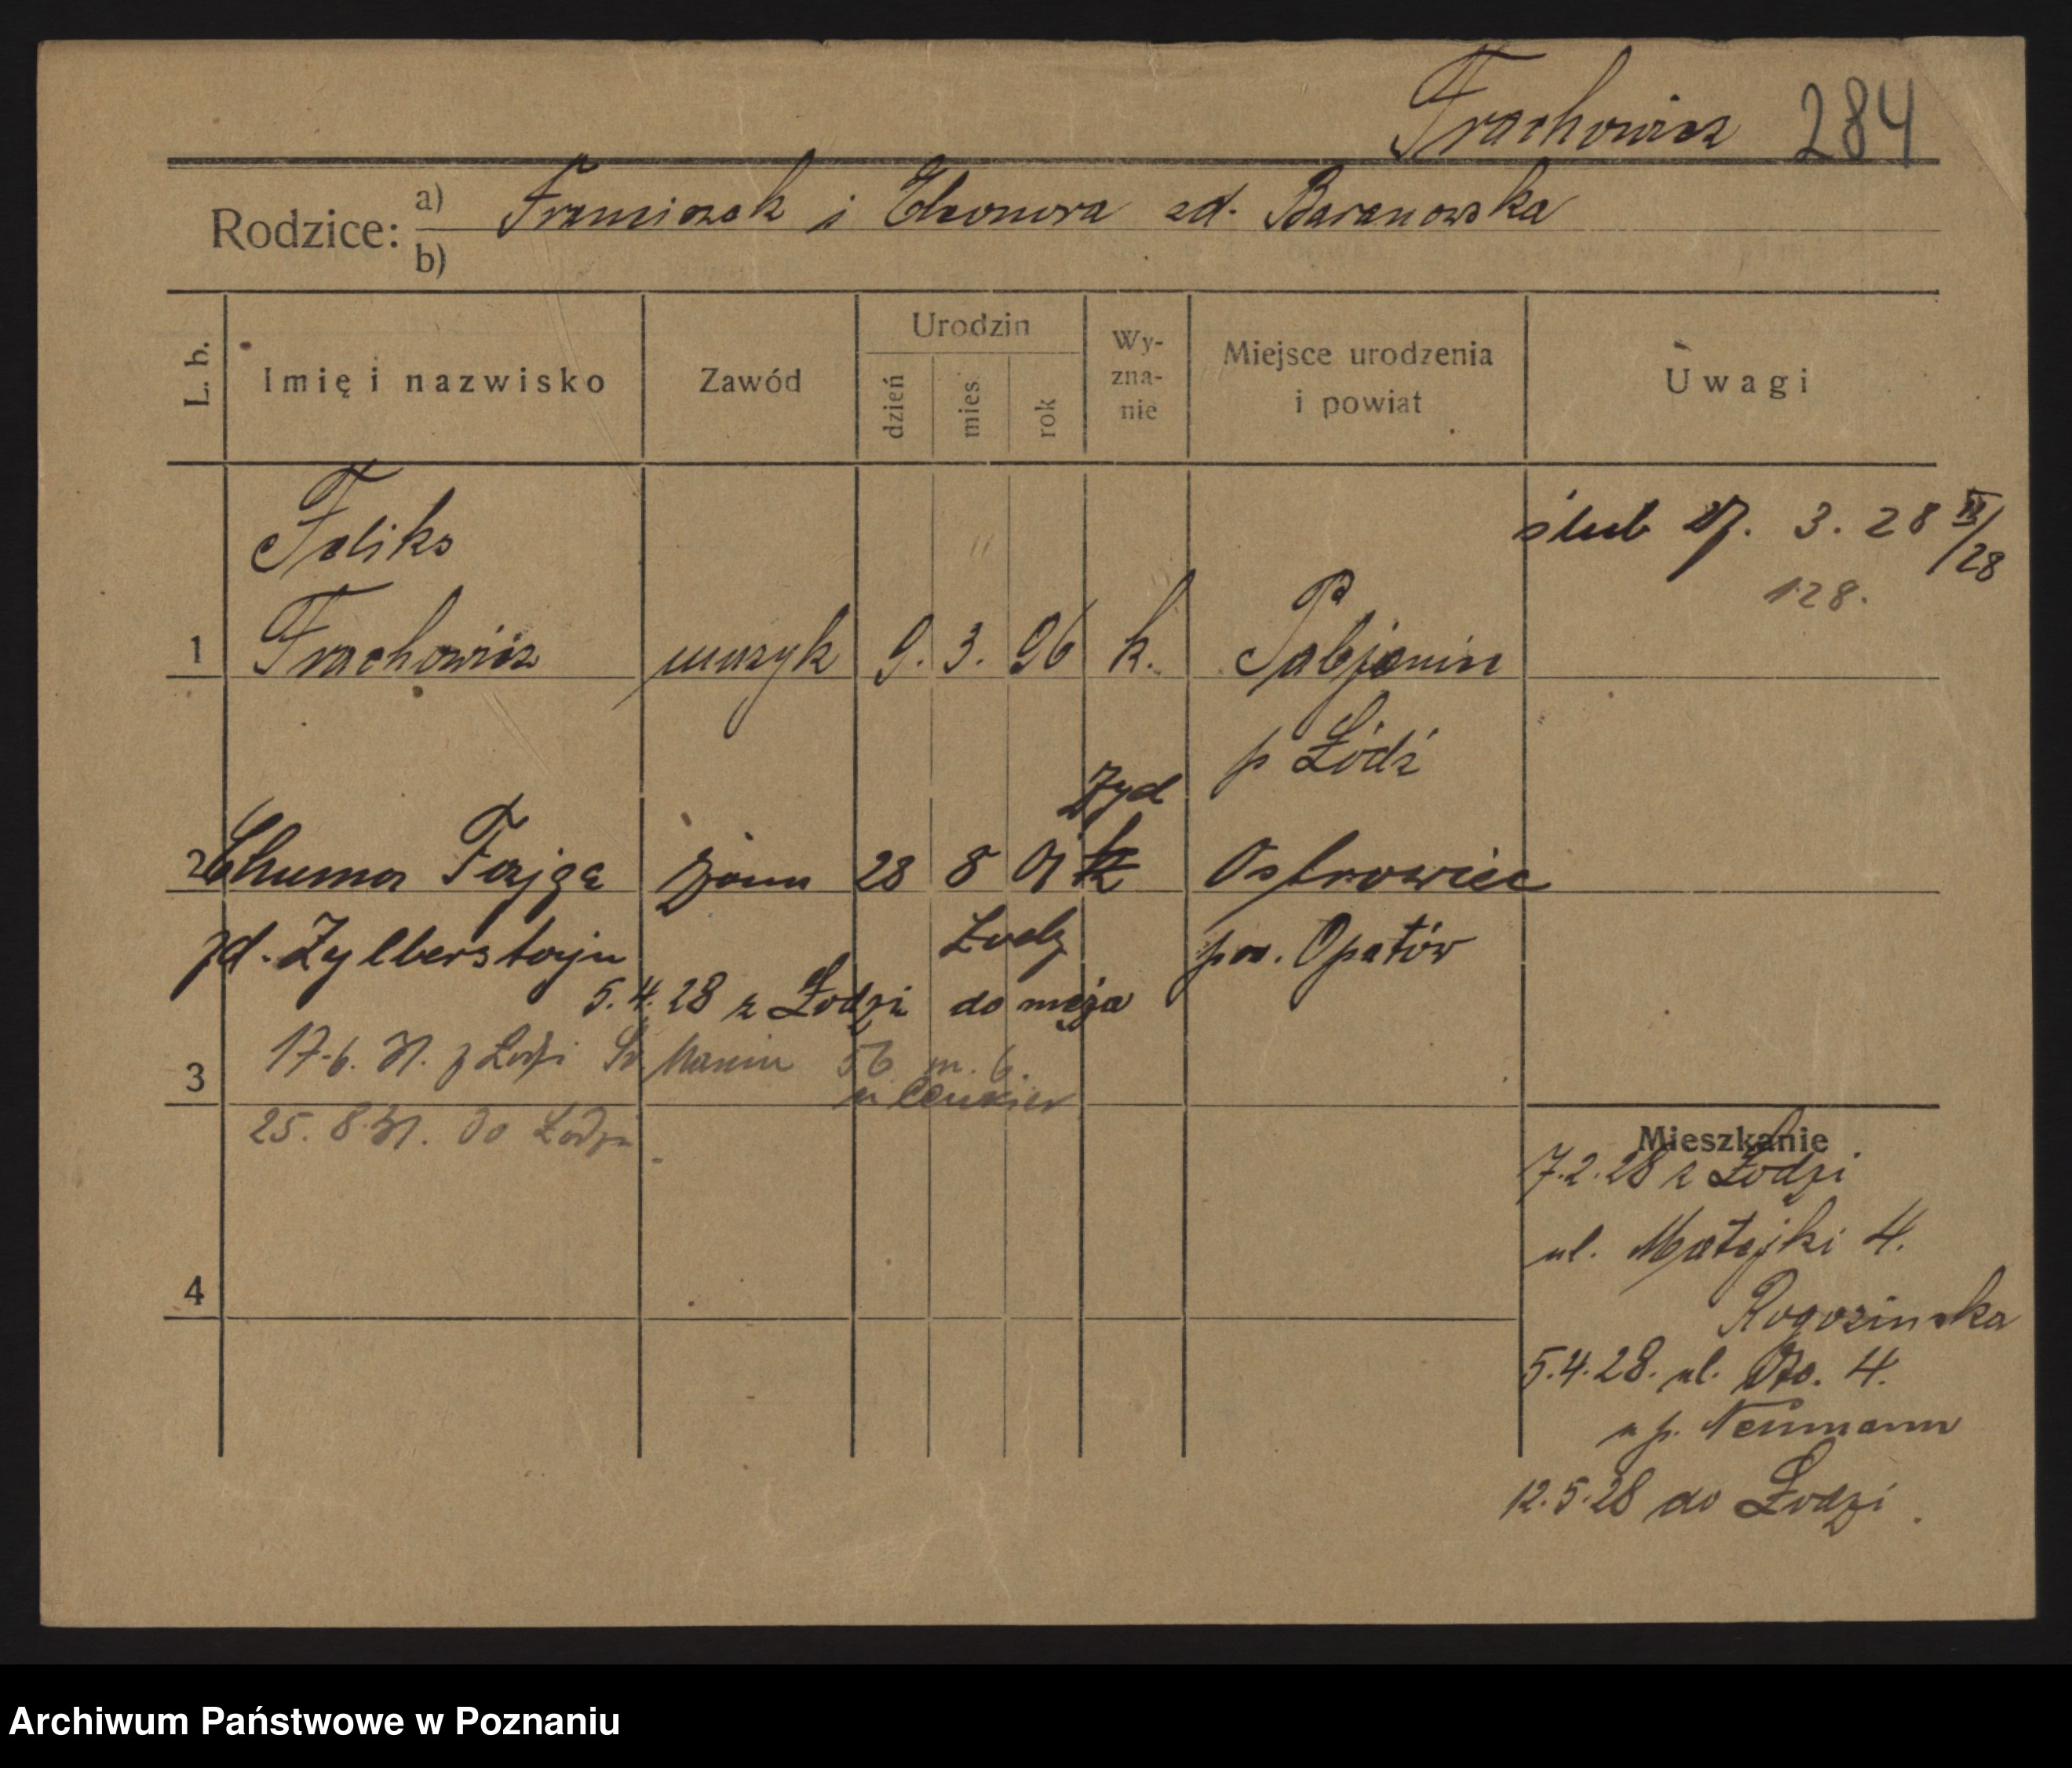 Frachowicz 284
Rodzice: a) Franciszek i Eleonora zd. Baranowska
b)
L. b.
Imię i nazwisko
Zawód
Urodzin
dzień mies. rok
Wy-
zna-
nie
Miejsce urodzenia
i powiat
Uwagi
Feliks
1 Frachowicz muzyk 9. 3. 96 k. Pabjanin
p Łódź
ślub 27. 3. 28 /28
128.
Żyd
2 Chuma Fajga żona 28 8 01 k Ostrowiec
zd. Zylbersztajn
Łodz
pow. Opatów
5. 4. 28 z Łodzi do męża
3 17.6.31. z Łodzi Św Marcin 56 m. 6.
u Cenkier
25. 8.31. do Łodzi
4
Mieszkanie
17.2.28 z Łodzi
ul. Matejki 4.
Rogozinska
5.4.28. ul. 4.
u p. Neumann
12.5.28 do Łodzi.
Archiwum Państwowe w Poznaniu